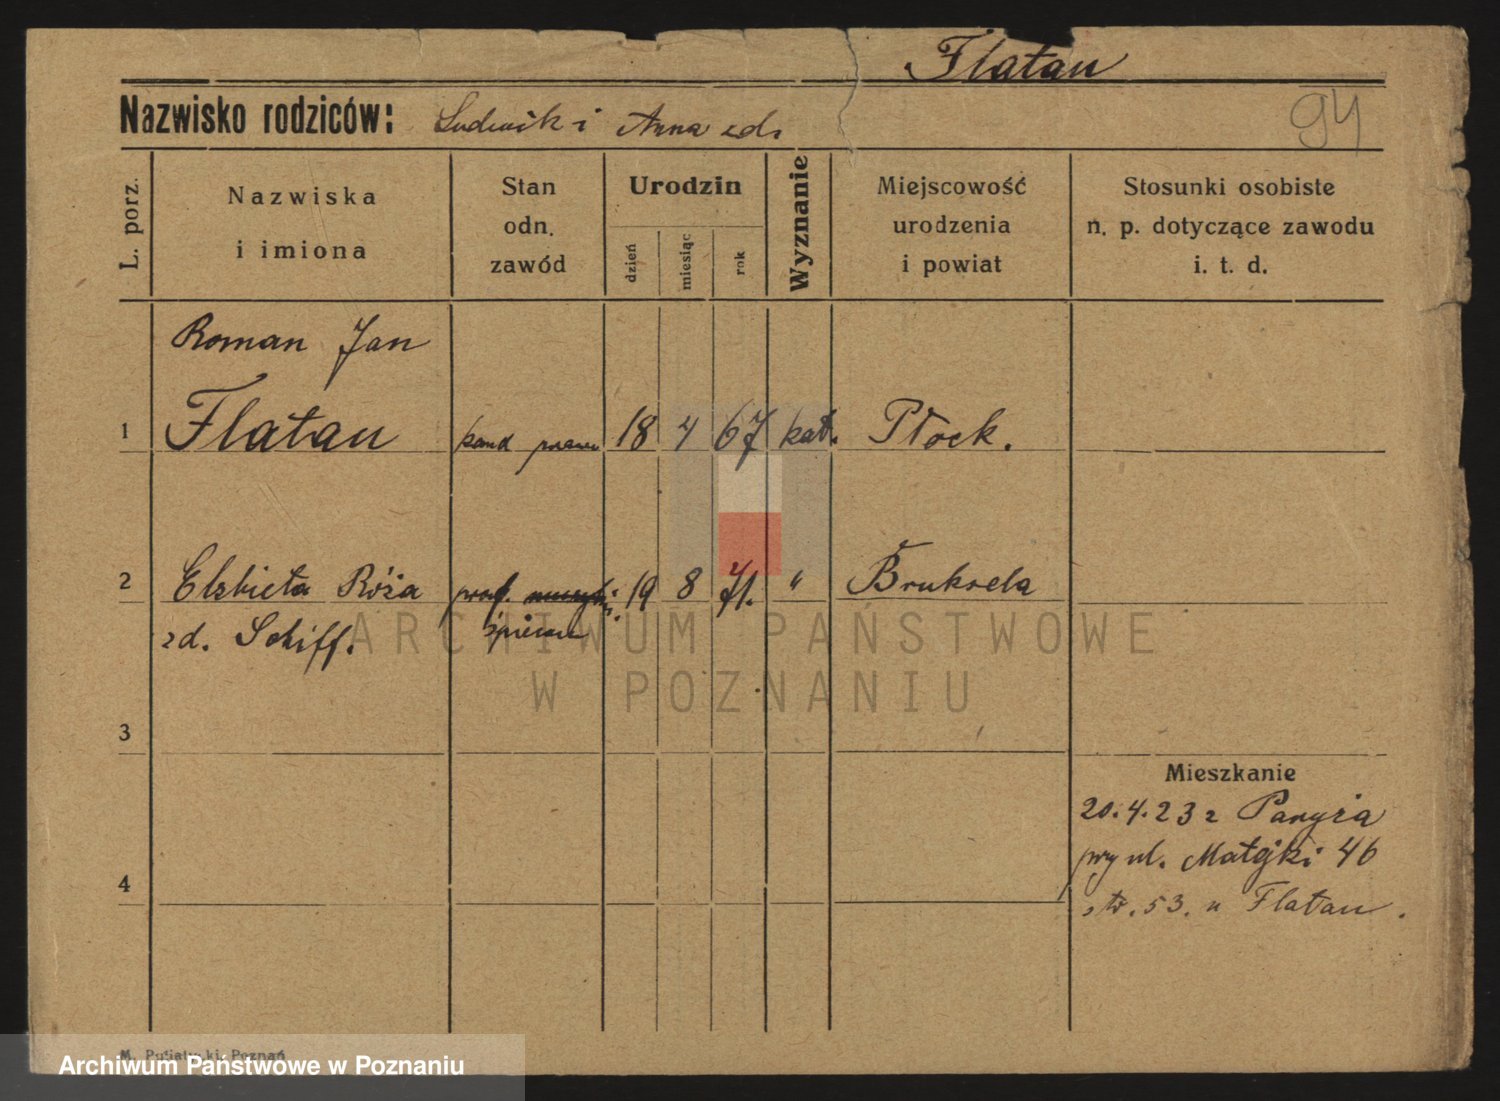 Flatau
Nazwisko rodziców: Ludwik i Anna zd.
94
L. porz.
Nazwiska
i imiona
Stan
odn.
zawód
Urodzin
dzień
miesiąc
rok
Wyznanie
Miejscowość
urodzenia
i powiat
Stosunki osobiste
n. p. dotyczące zawodu
i. t. d.
Roman Jan
1 Flatau kand prawa 18 4 67 kat. Płock.
2 Elżbieta Róża prof. 19 8 71. " Bruksela
zd. Schiff. śpiewu
ARCHIWUM PAŃSTWOWE
W POZNANIU
3
Mieszkanie
20.4.23 z Paryża
przy ul. Matejki 46
4
53. u Flatau.
M. Putiatycki, Poznań
Archiwum Państwowe w Poznaniu